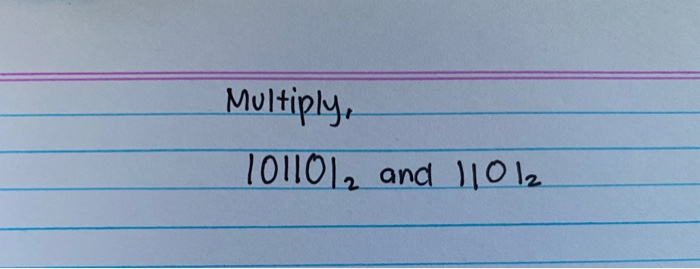 Multiply,
101101₂ and 1101₂